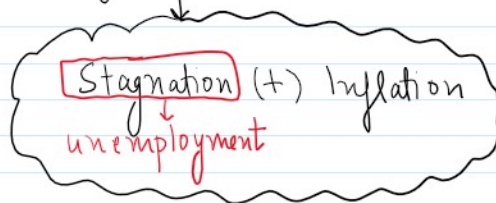 Stagnation (+) Inflation
unemployment